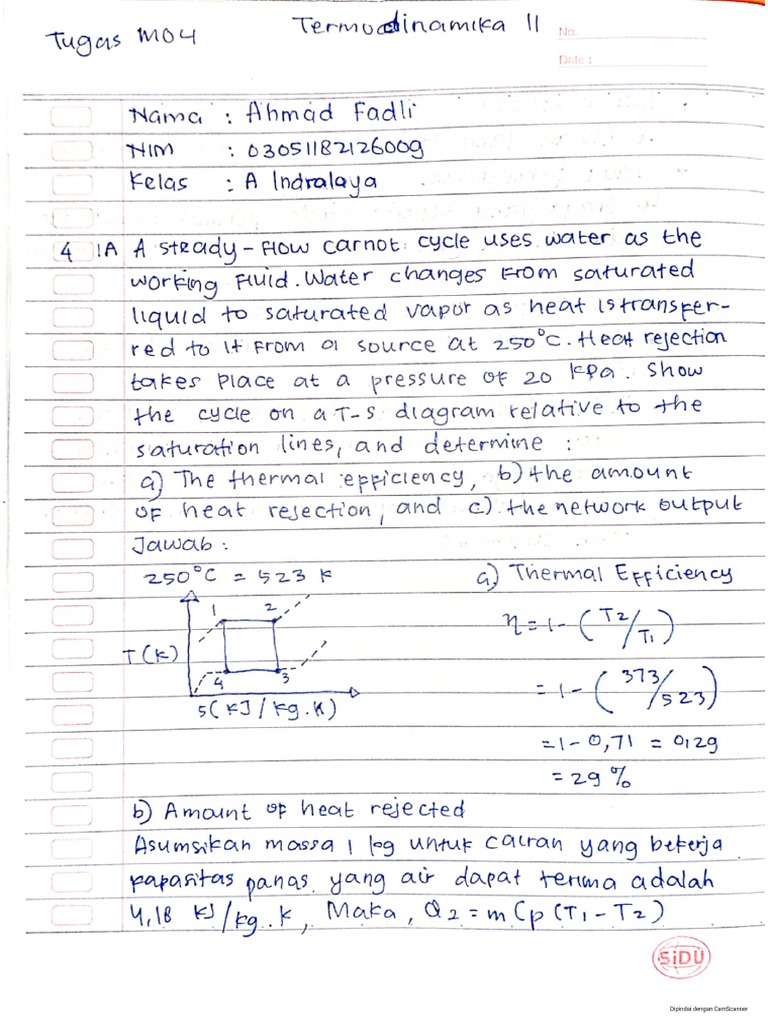 Tugas M04
Termodinamika II
No.
Date :
Nama : Ahmad Fadli
NIM : 03051182126009
Kelas : A Indralaya
4 1A A steady-flow carnot cycle uses water as the
working fluid. Water changes from saturated
liquid to saturated vapor as heat is transfer-
red to it from a source at 250°C. Heat rejection
takes place at a pressure of 20 kpa. Show
the cycle on a T-S diagram relative to the
saturation lines, and determine :
a) The thermal efficiency, b) the amount
of heat rejection, and c) the network output
Jawab :
250°C = 523 K
1 2
T(K)
4 3
S(KJ/kg.K)
a) Thermal Efficiency
η = 1 - (T2/T1)
= 1 - (373/523)
= 1 - 0,71 = 0,29
= 29 %
b) Amount of heat rejected
Asumsikan massa 1 kg untuk cairan yang bekerja
kapasitas panas yang air dapat terima adalah
4,18 KJ/kg.k, Maka, Q2 = m Cp (T1 - T2)
SiDU
Dipindai dengan CamScanner